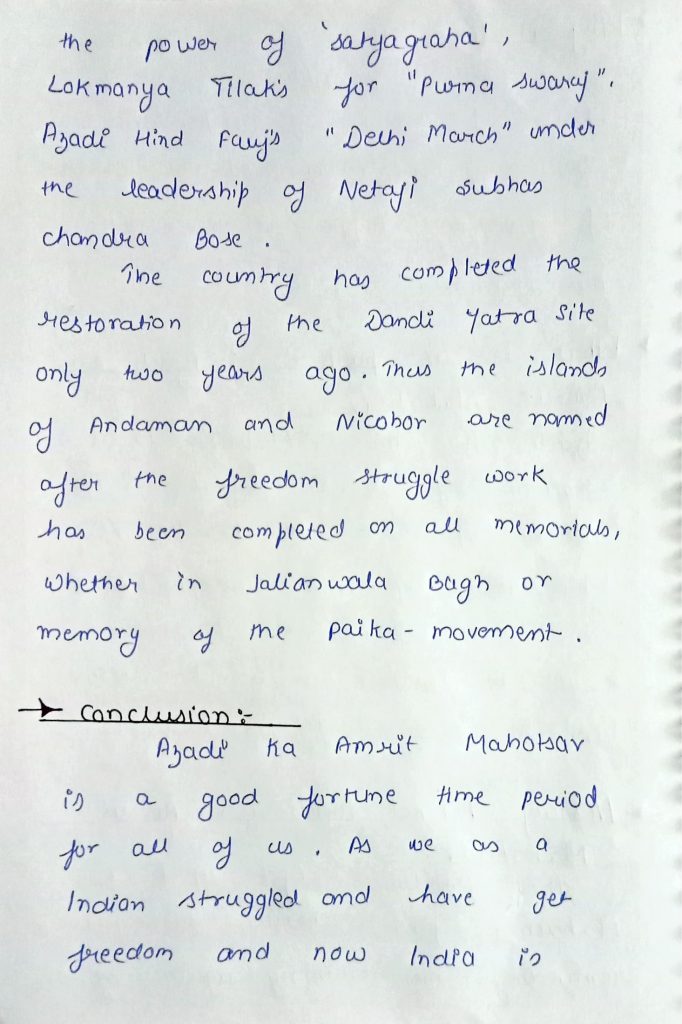 the power of 'satyagraha',
Lokmanya Tilak's for "Purna swaraj".
Azadi Hind Fauj's "Delhi March" under
the leadership of Netaji Subhas
chandra Bose.
The country has completed the
restoration of the Dandi Yatra site
only two years ago. Thus the islands
of Andaman and Nicobar are named
after the freedom struggle work
has been completed on all memorials,
whether in Jalianwala Bagh or
memory of the paika-movement.
→ Conclusion:-
Azadi Ka Amrit Mahotsav
is a good fortune time period
for all of us. As we as a
Indian struggled and have get
freedom and now India is